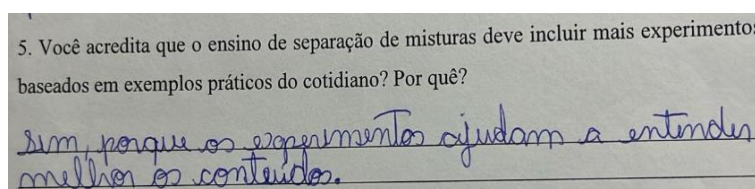 5. Você acredita que o ensino de separação de misturas deve incluir mais experimentos
baseados em exemplos práticos do cotidiano? Por quê?
Sim, porque os experimentos ajudam a entender
melhor os conteúdos.